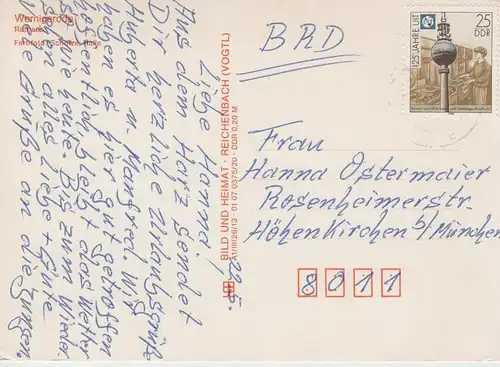 Wernigerode
Rathaus
Farbfoto: Schulze, Halle
29.5.
Liebe Hanna,
Aus dem Harz sendet
Dir herzliche Urlaubsgrüße
Huberta u. Manfred. Wir
haben es hier gut getroffen
hoffentlich bleibt das Wetter
so wie heute. Bis zum Wieder-
sehen alles Liebe + Gute.
Viele Grüße an die Jungen.
BILD UND HEIMAT · REICHENBACH (VOGTL)
A1/III/26/13 · 01 07 0375/20 · DDR 0,20 M
BRD
125 JAHRE UIT
25
DDR
Frau
Hanna Ostermaier
Rosenheimerstr.
Höhenkirchen b/München
8011